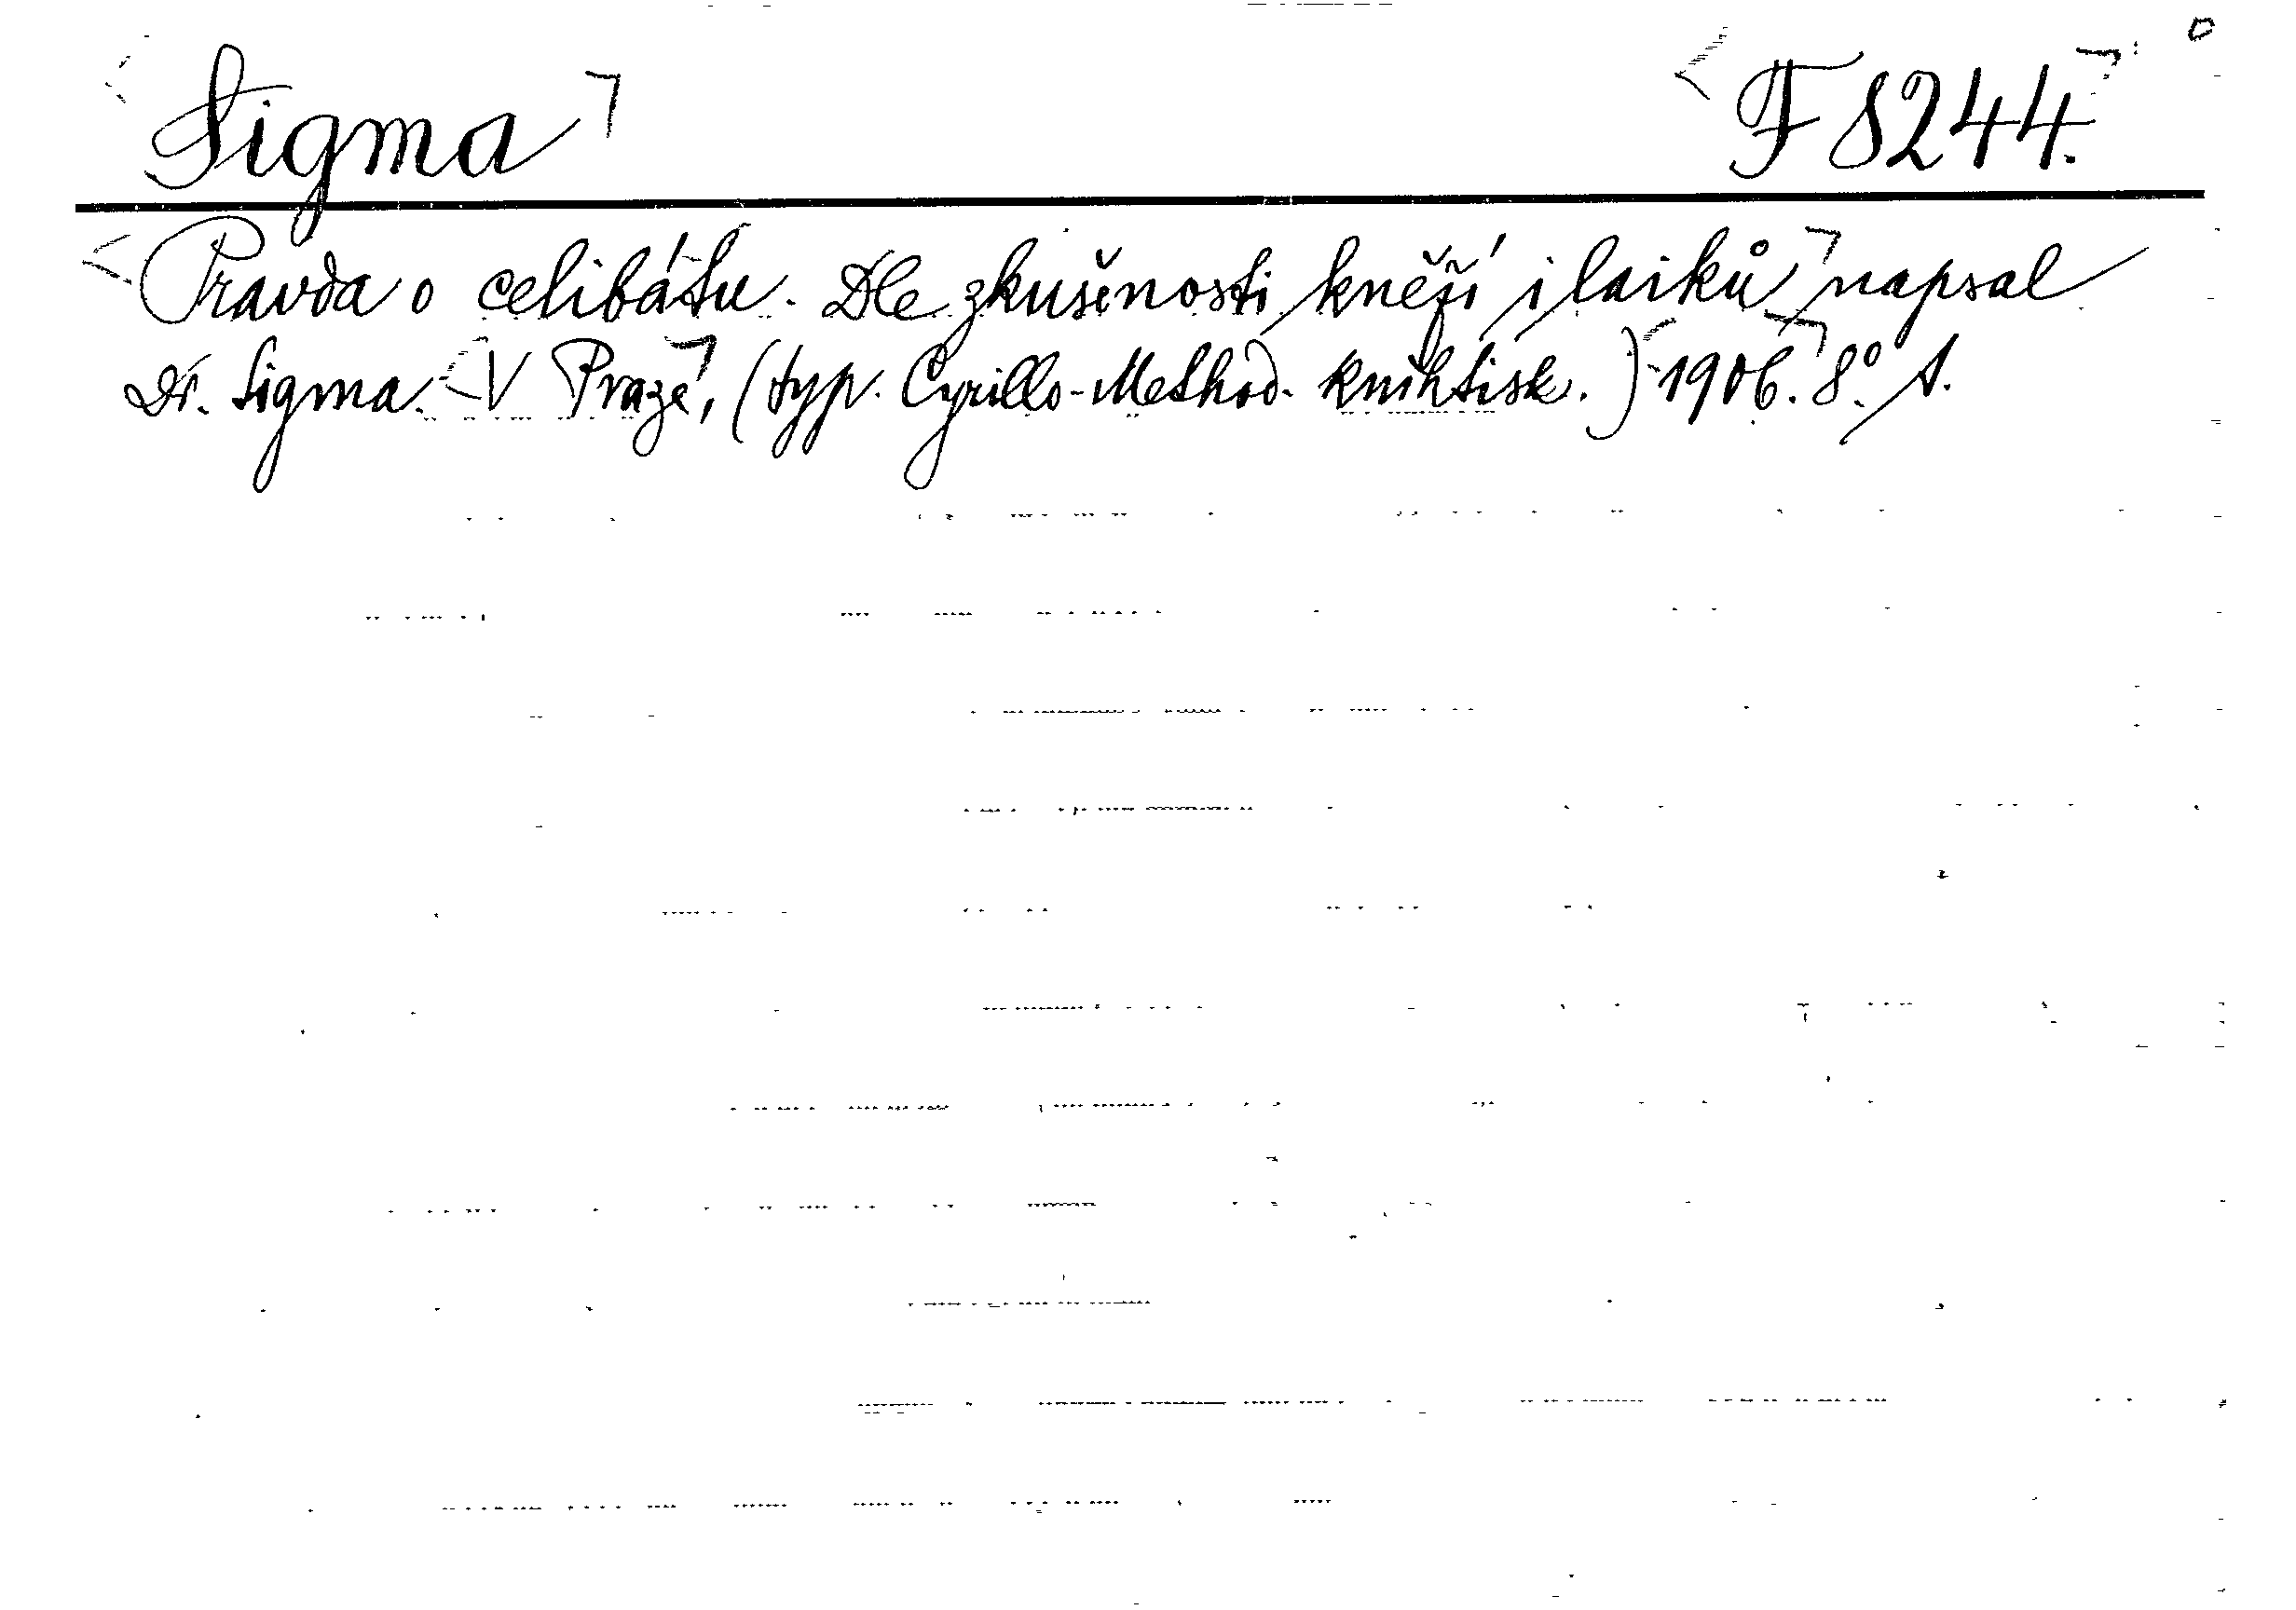 Sigma F 8244.
Pravda o celibátu. Dle zkušenosti kněží i laiků napsal
Dr. Sigma. V Praze, (typ. Cyrillo-Method. knihtisk.) 1906. 8°. A.